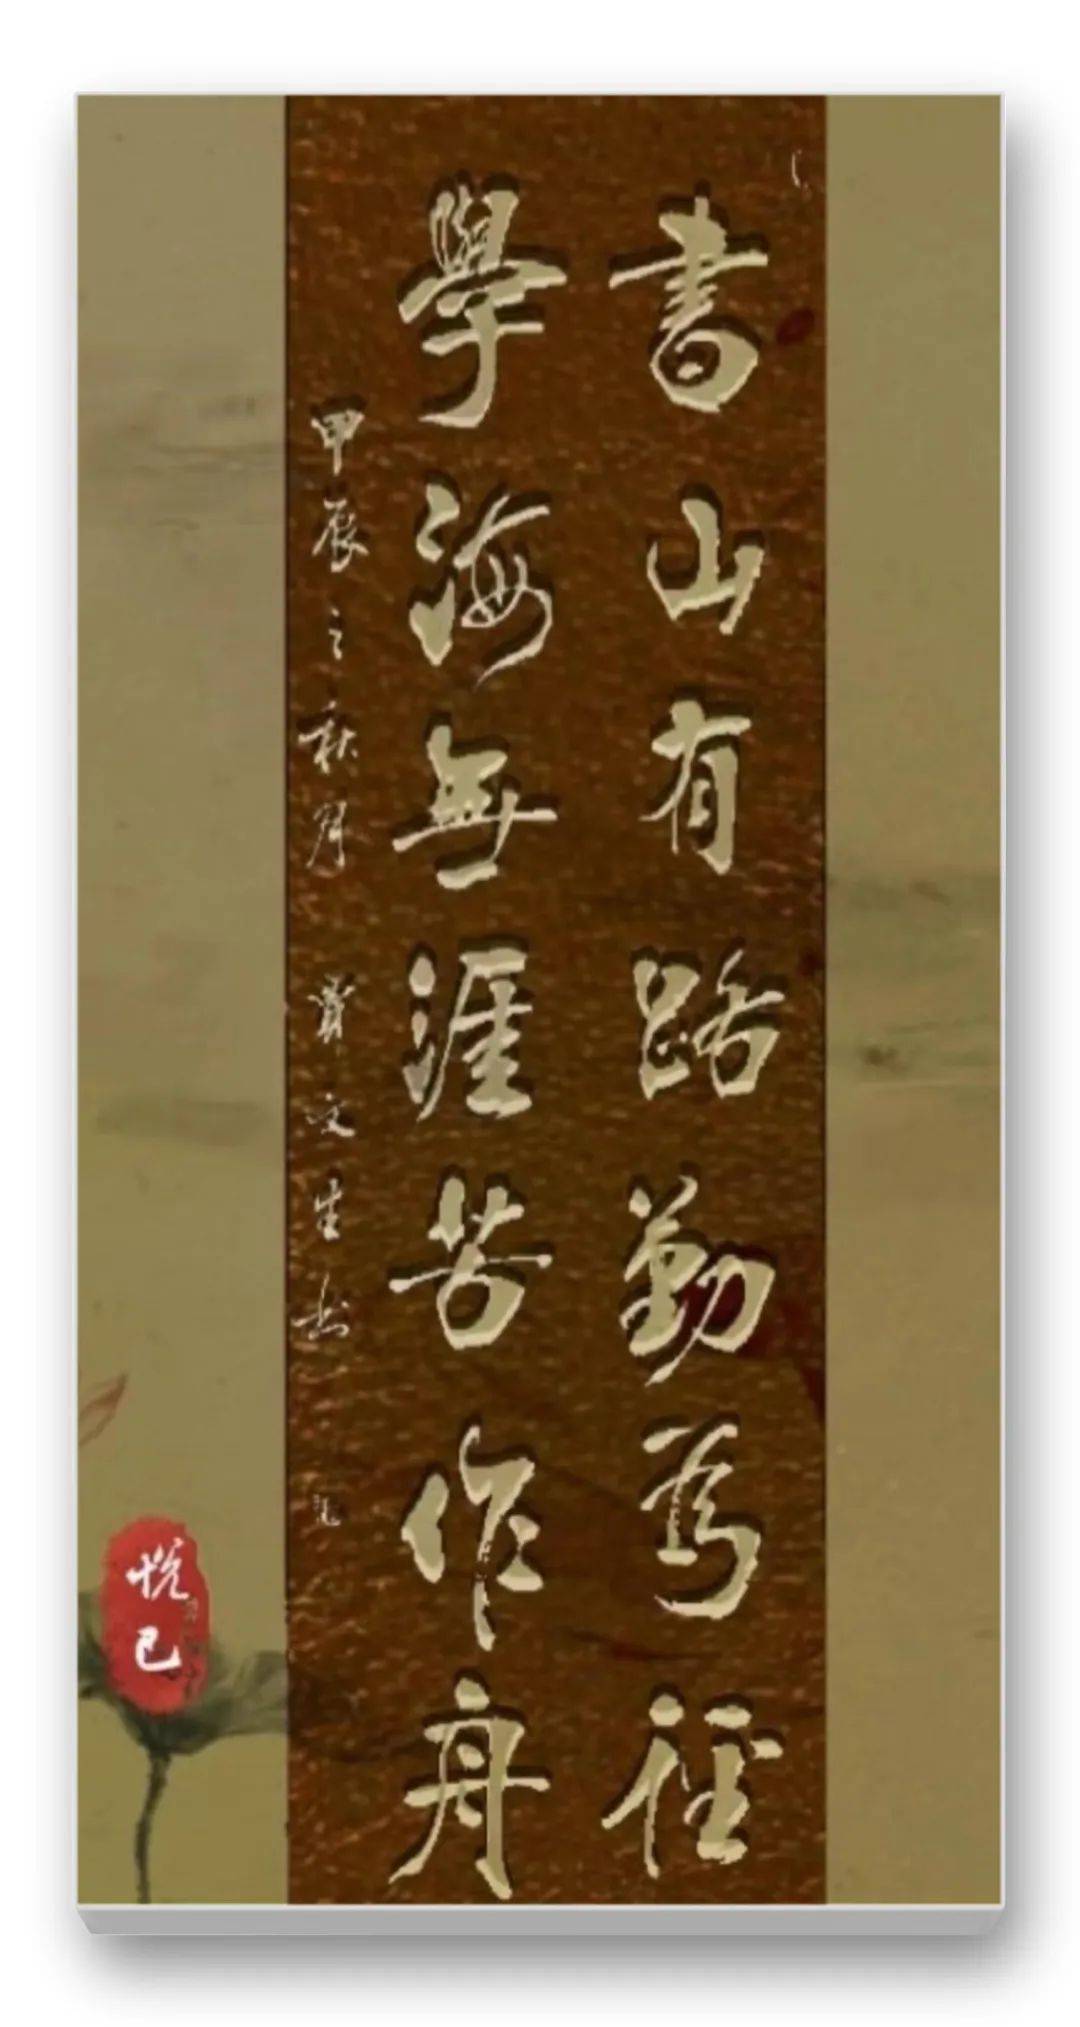 書山有路勤為徑
學海無涯苦作舟
甲辰之秋月 文生书
悦己